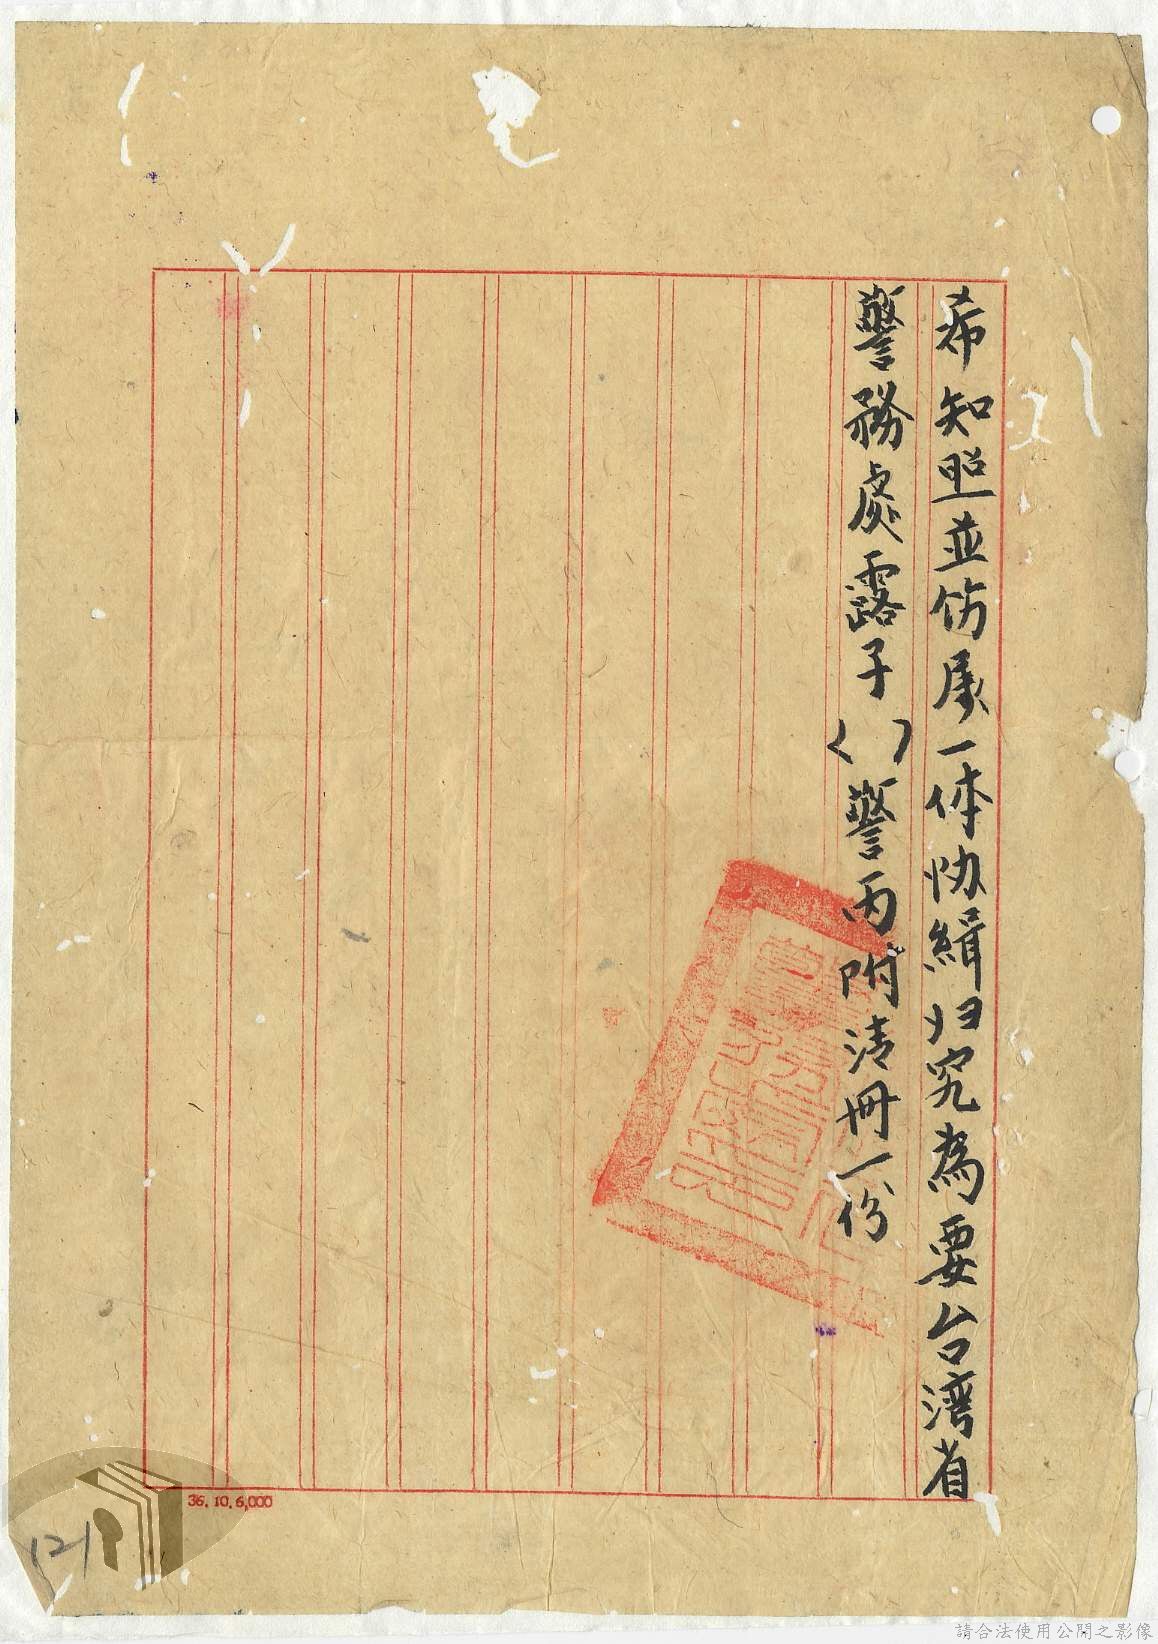 希知照並飭屬一体协緝归究為要台灣省
警務處露子( )警丙附清冊一份
36.10.6,000
121
請合法使用公開之影像